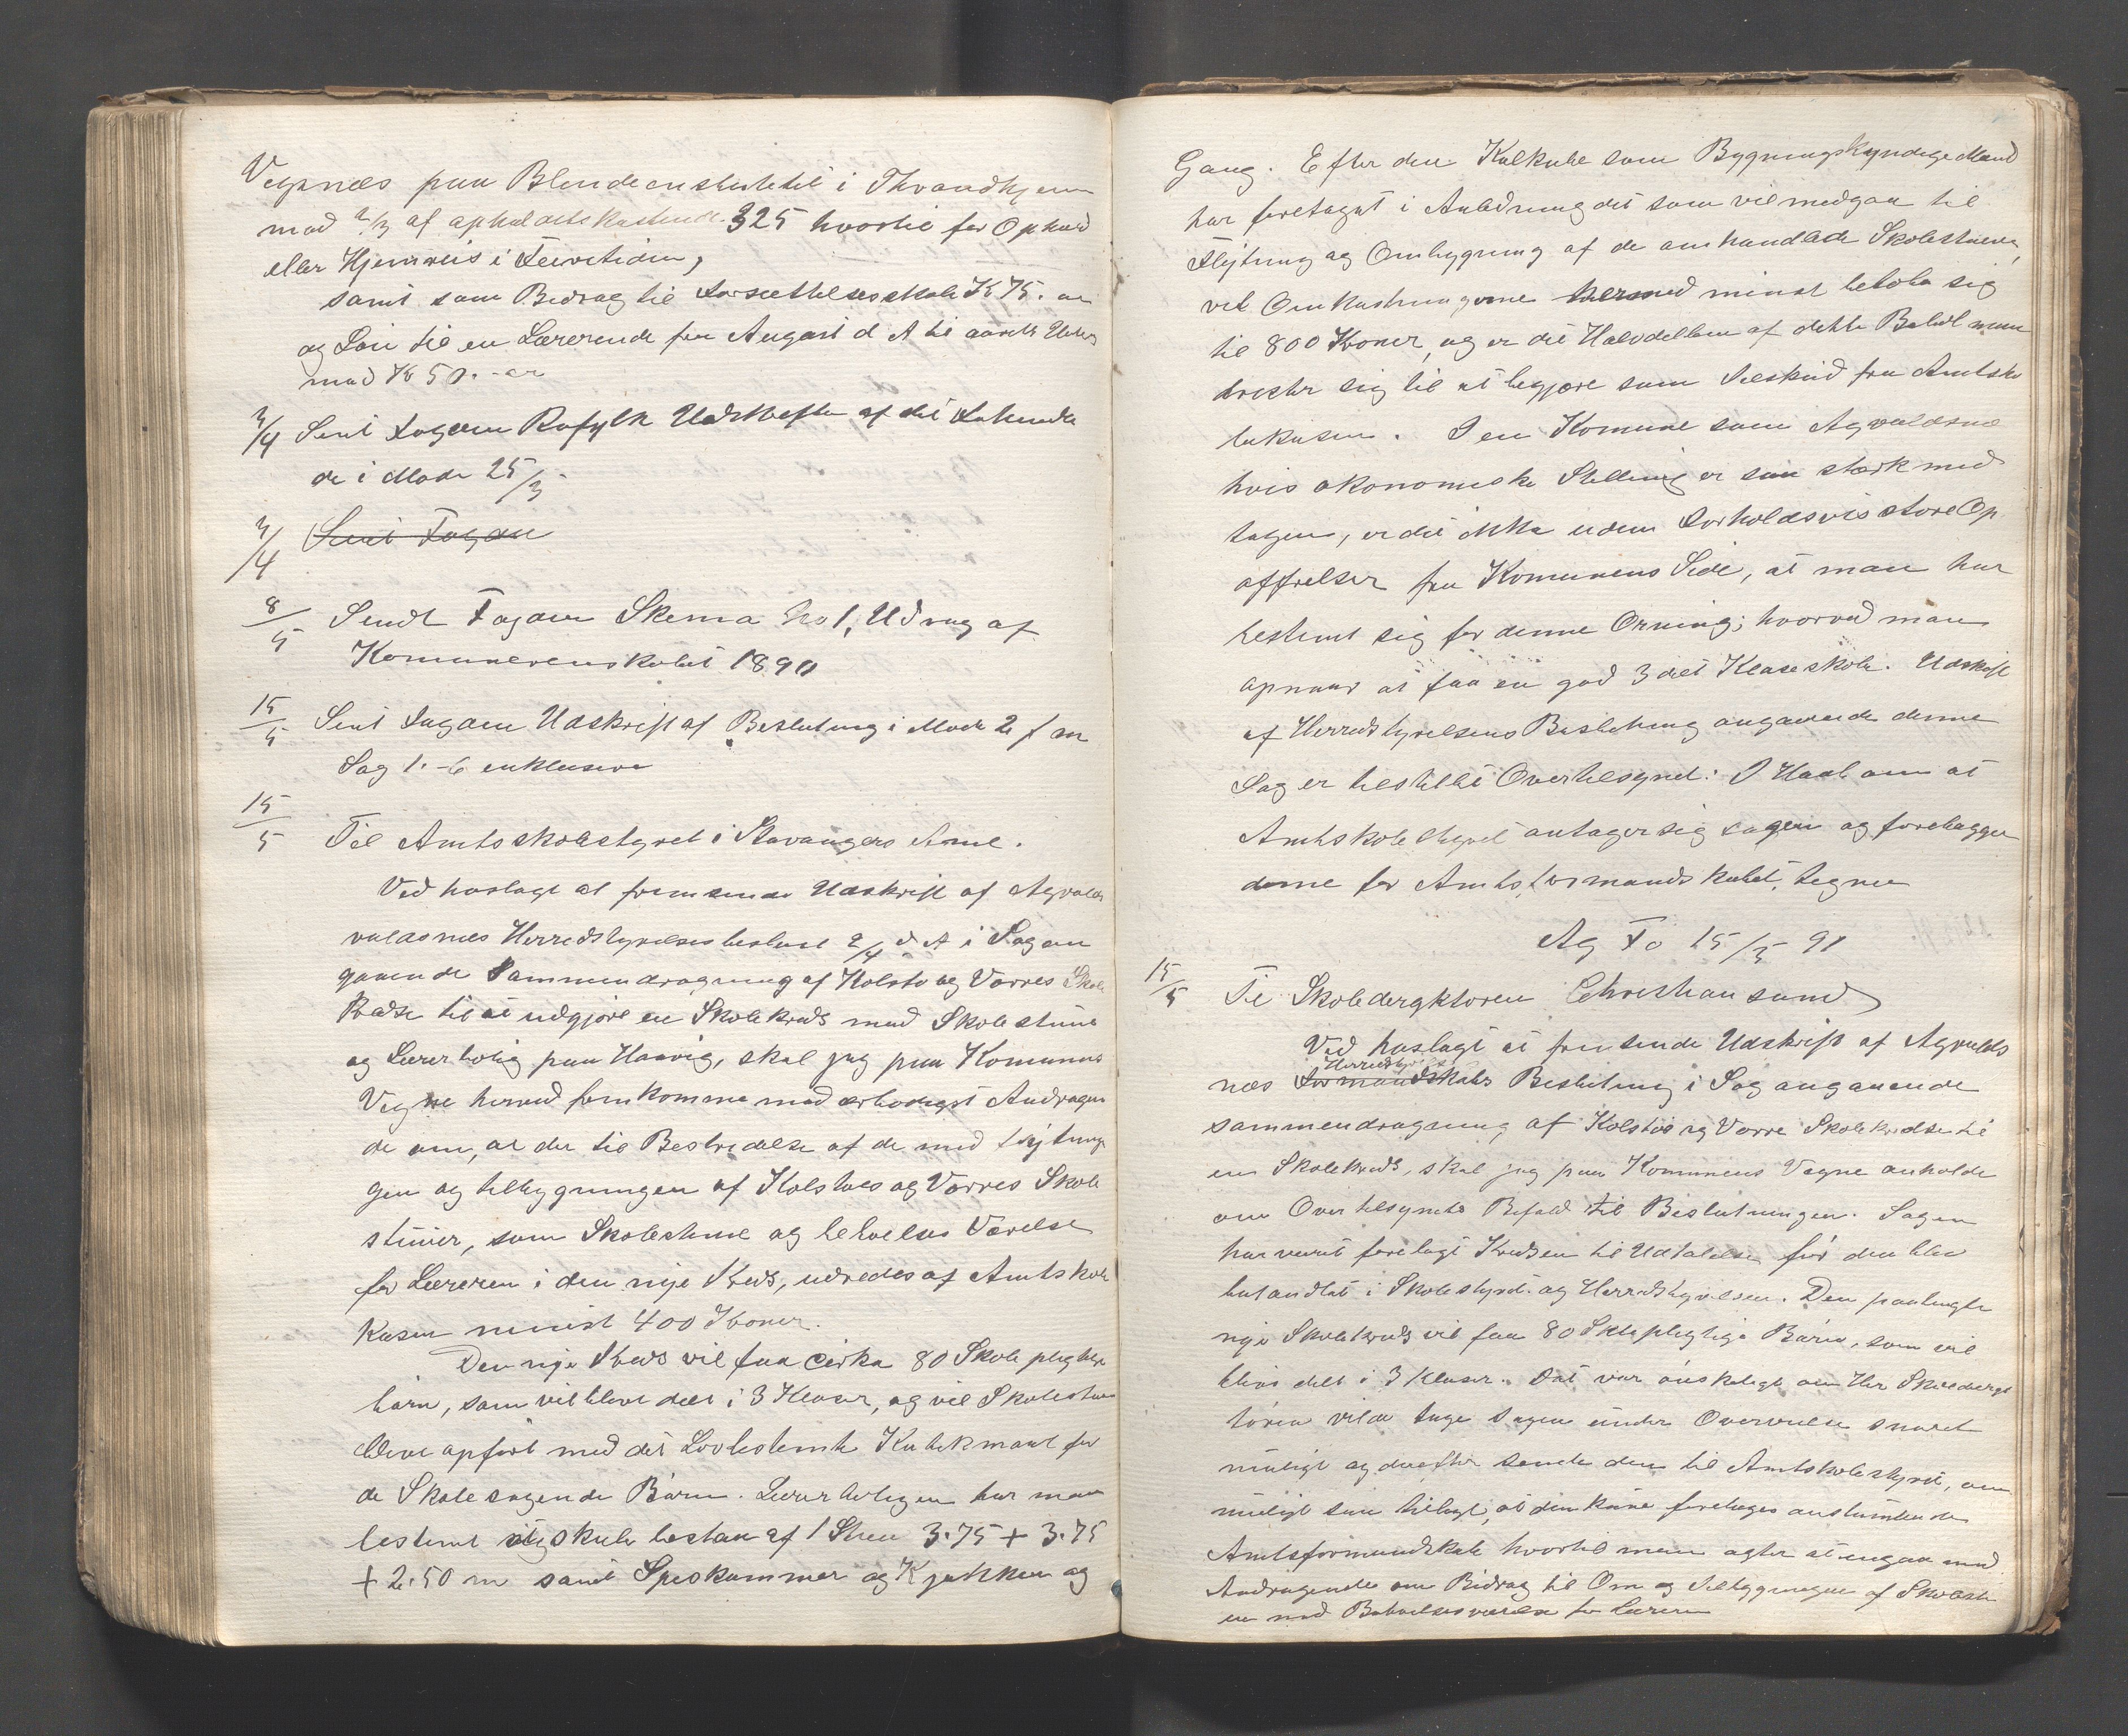 Vegnæs paa Blendeanstaltet i Throndhjem
mod 2/3 af opholdets kostende. 325 hvortil for Ophold
eller Hjemreis i Feiretiden,
samt som Bidrag til Forsættelsesskole Kr 75. -
og Løn til en Lærerende fra August d A til aarets
med Kr 50. -
2/4 Sent Fogden Rofylk Udskrifter af det
de i Møde 25/3
2/4 Sent Fogden
8/5 Sendt Fogden Skema No 1, Udrag af
Komunerenskabet 1890
15/5 Sent Fogden Udskrift af Beslutning i Møde 2 f m
Sag 1.-6 enklusive
15/5 Til Amtsskolestyret i Stavangers Amt.
Ved hoslagt at fremsende Udskrift af Agvalds
valdsnæs Herredstyrelsesbeslut 2/4 d A i Sag an
gaaende Sammendragning af Kolstø og Vorres Skole
Kredse til at udgjøre en Skolekreds med Skolestue
og Lærerbolig paa Haavig, skal jeg paa Komunens
Vegne herved fremkomme med ærbødigst Andragen
de om, at der til Bestridelse af de med Fløjtninge
gen og tilbygningen af Kolstøes og Vorres Skole
stuer, som Skolestue og behvelses Værelse
for Læreren i den nye Kreds, udredes af Amtskole
Kasen minst 400 Kroner.
Den nye Kreds vil faa cirka 80 Skole pligtige
børn, som vil blive delt i 3 Klaser, og vil Skolestuen
blive opført med det Lovbestemte Kubikmaal for
de Skolesøgende Børn. Lærerboligen har man
bestemt sig skule bestaa af 1 Stue 3.75 + 3.75
+ 2.50 m samt Speskammer og Kjøkken og
Gang. Efter den Kalkule som Bygningskyndige Mænd
har foretaget i Anledning det som vil medgaa til
Fløjtning og Ombygning af de omhandlede Skolestuer,
vil Omkostningerne hermed minst beløbe sig
til 800 Kroner, og er det Halvdellen af dette Beløb man
drister sig til at begjære som Tilskud fra Amtsko
lekasen. I en Komune som Agvaldsnæs
hvis økonomiske Stelling er saa stærk med
tagen, er det ikke uden Forholdsvis store Op
offrelser fra Komunens Side, at man har
bestemt sig for denne Orning; hvorved man
opnaar at faa en god 3 delt Klaseskole. Udskrift
af Herredstyrelsens Beslutning angaaende denne
Sag er tilstillet Overtilsynet. I Haab om at
Amtsskolestyret antager sig sagen og forelægger
denne for Amtsformandskabet, tegner
Ag Fo 15/5 91
15/5 Til Skoledergktøren Christiansand
Ved hoslagt at fremsende Udskrift af Agvalds
Herredstyr
næs Formandskabs Beslutning i Sag angaaende
sammendragning af Kolstøe og Vorre Skolekredse til
en Skolekreds, skal jeg paa Komunens Vegne anholde
om Overtilsynets Bifald til Beslutningen. Sagen
har været forelagt Kredsen til Udtalelse før den blev
behandlet i Skolestyret og Herredstyrelsen. Den paatengte
nye Skolekreds vil faa 80 Skolepligtige Børn, som vil
blive delt i 3 Klaser. Det var ønskeligt om Hr Skoledergk
tøren vilde tage sagen under Overveielse snarest
muligt og derefter sende den til Amtsskolestyret, om
muligt saa betids, at den kune forelæges anstundende
Amtsformandskab hvortil man agter at ingaa med
Andragende om Bidrag til Om og Tilbygningen af Skolestu
en med Bekvelsesværelse for Læreren